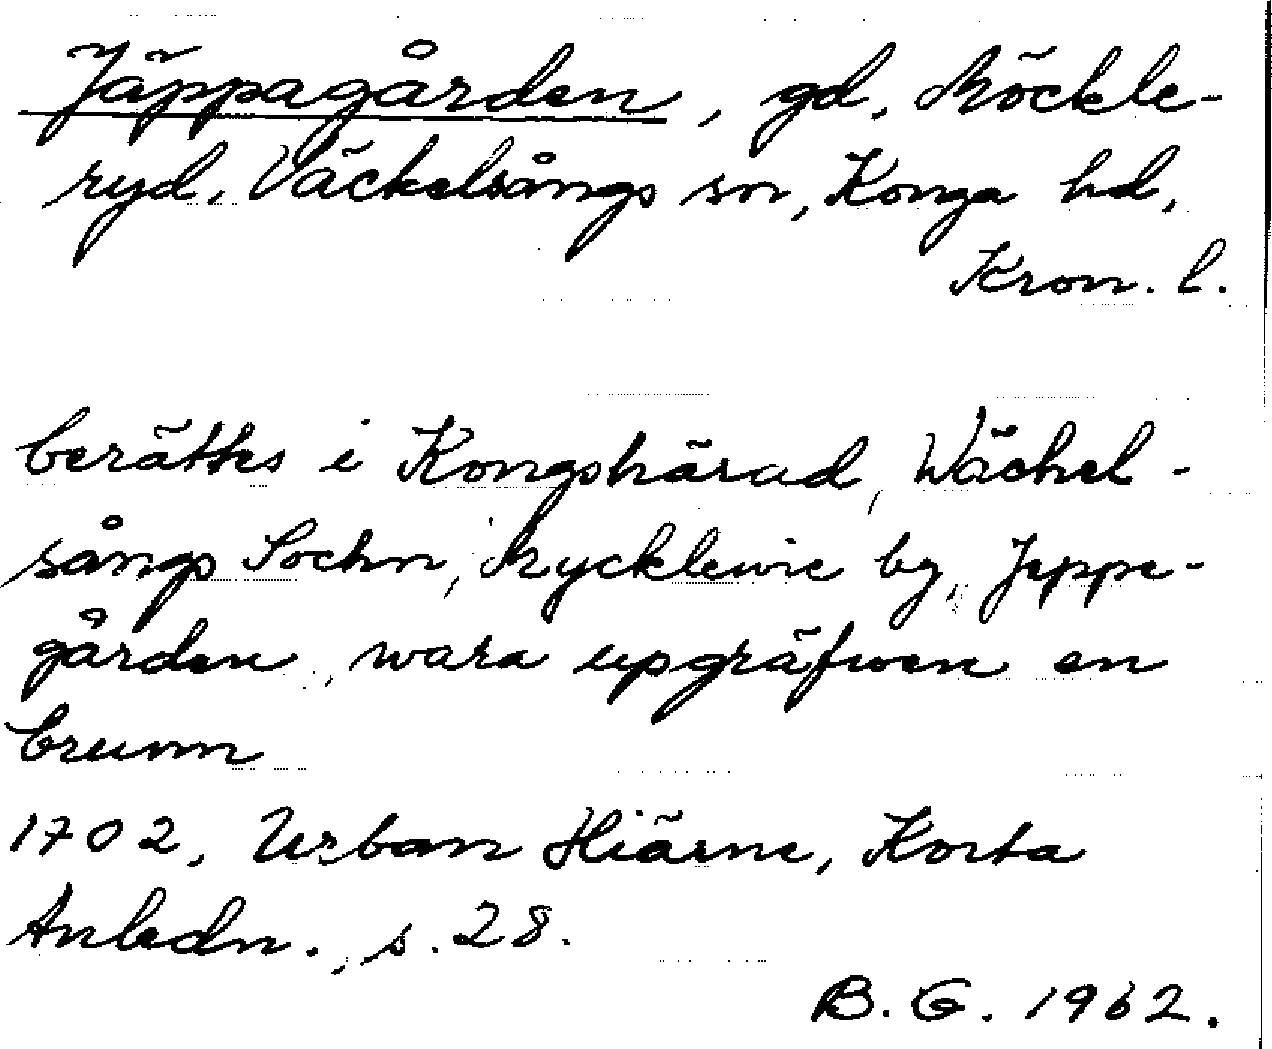 Jäppagården, gd, Möckle-
ryd, Väckelsångs sn, Konga hd,
Kron. l.
berättes i Kongshärad, Wäckel-
sångs Sochn, Mycklewie by, Jeppe-
gården, wara upgräfwen en
brunn
1702, Urban Hiärne, Korta
Anledn., s. 28.
B. G. 1962.